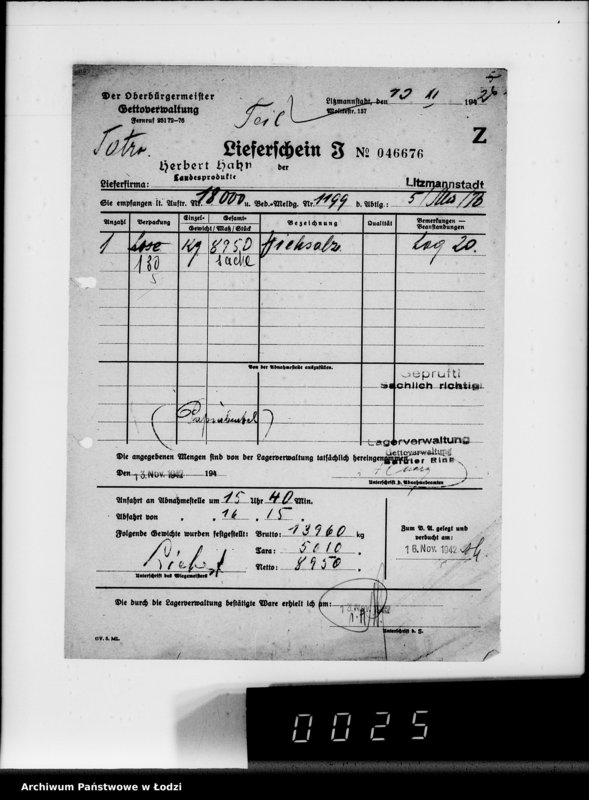 Der Oberbürgermeister
Gettoverwaltung
Fernruf 26172-76
Litzmannstadt, den 13 11 194
Moltkestr. 157
Teil
Z
Lieferschein J № 046676
Herbert Hahn
Landesprodukte
der
Lieferfirma: Litzmannstadt
Sie empfangen lt. Auftr. Nr. 18000 u. Bed.-Meldg. Nr. 1199 d. Abtlg.:
Anzahl Verpackung Einzel- Gesamt- Bezeichnung Qualität Bemerkungen —
Gewicht / Maß / Stück Beanstandungen
1 Lose kg 8950 Viehsalz Lag 20.
130 Säcke
Von der Abnahmestelle auszufüllen.
Geprüft!
Sachlich richtig!
Lagerverwaltung
Gettoverwaltung
Die angegebenen Mengen sind von der Lagerverwaltung tatsächlich hereingenommen
Den 13. Nov. 1942 194
Unterschrift d. Abnahmebeamten
Anfahrt an Abnahmestelle um 15 Uhr 40 Min.
Abfahrt von " " 16 " 15 "
Folgende Gewichte wurden festgestellt: Brutto: 13960 kg
Tara: 5010 "
Netto: 8950 "
Unterschrift des Wiegemeisters
Zum B. A. gelegt und
verbucht am:
16. Nov. 1942
Die durch die Lagerverwaltung bestätigte Ware erhielt ich am:
Unterschrift d. E.
GV. 5. ML.
0025
Archiwum Państwowe w Łodzi